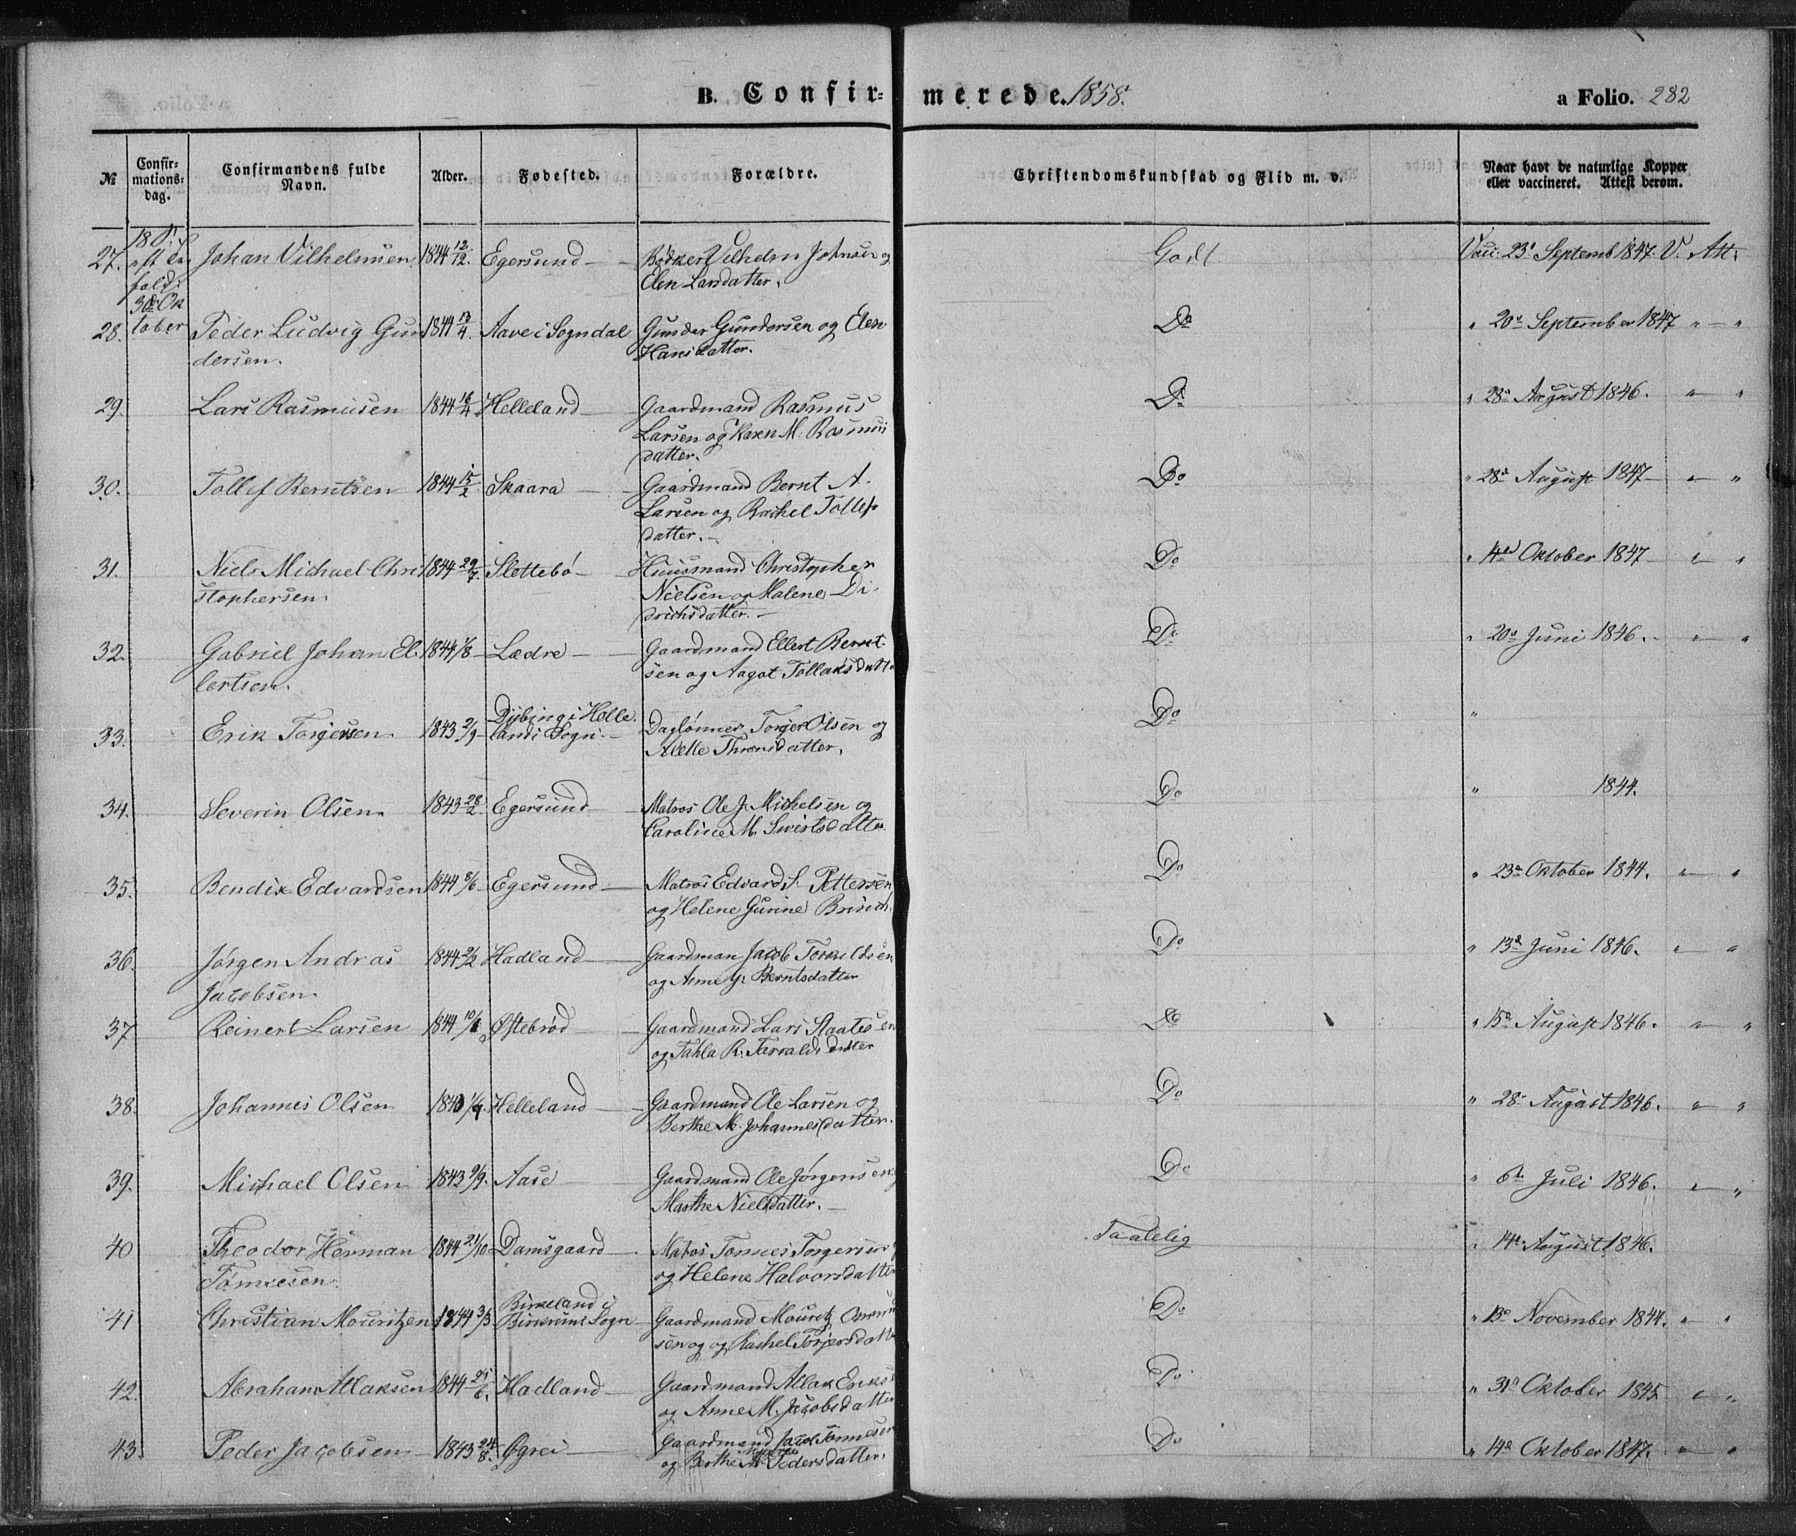 B. Confir- merede. 1858. a Folio. 282
№ Confir- mations- dag. Confirmandens fulde Navn. Alder. Fødested. Forældre. Christendomskundskab og Flid m. v. Naar havt de naturlige Kopper eller vaccineret. Attest derom.
27. Johan Vilhelmsen 1844 12/12. Egersund Bødker Vilhelm Johnsen og Godt. Vacc. 23d Septemb 1847. V. Att.
Elen Larsdatter.
30te Ok
28. tober Peder Ludvig Gun 1844 13/4. Aave i Sogndal Gunder Gundersen og Elen Do " 20d September 1847 " "
dersen. Hansdatter.
29. Lars Rasmusen 1844 16/4 Helleland Gaardmand Rasmus Do " 28d August 1846. " "
Larsen og Karen M. Rasmus
datter.
30. Tollef Berntsen 1844 15/2 Skaara Gaardmand Bernt A. Do " 28d August 1847 " "
Larsen og Rachel Tollefs
datter.
31. Niels Michael Chri 1844 29/7. Slottebø Huusmand Christopher Do " 14de Oktober 1847 " "
stophersen. Nielsen og Malene Di
drichsdatter.
32. Gabriel Johan El 1844 1/8 Lædre Gaardmand Ellert Bernt Do " 20d Juni 1846. " "
lertsen. sen og Aagot Tollaksdatte
33. Erik Torgersen 1843 2/9 Dybing i Helle Daglønner Torger Olsen og Do "
lands Sogn. Thronsdatter.
34. Severin Olsen 1843 28/2 Egersund Matros Ole J. Michelsen og Do " 1844.
Caroline M. Sivertsdatter
35. Bendix Edvardsen 1844 8/6 Egersund Matros Edvard S. Pettersen Do " 23d Oktober 1844. " "
og Helene Gurine
36. Jørgen Andras 1844 2/2 Hadland Gaardman Jacob Torkildsen Do " 13d Juni 1846. " "
Jacobsen og Anne G. Berntsdatter
37 Reinert Larsen 1844 10/6 Østebrød Gaardmand Lars Staalesen Do " 15d August 1846. " "
og Tahla R. Tarvaldsdatter
38. Johannes Olsen Helleland Gaardmand Ole Larsen og Do " 28d August 1846. " "
Berthe M. Johannesdatter.
39. Michael Olsen 1843 9/9. Aase Gaardmand Ole Jørgensen Do " 6te Juli 1846. " "
Marthe Nielsdatter.
40 Theodor Herman 1844 21/10 Damsgaard Matros Tønnes Torgersen Taalelig " 14d August 1846.
Tønnesen og Helene Halvorsdatter
41 Christian Mouritzen 1844 3/3 Birkeland i Gaardmand Mouritz Do " 13d November 1844. " "
Sogn sen og og Rachel Torgersdatt
42. Abraham Atlaksen 1844 21/6. Hadland Gaardmand Atlak Eriks Do " 31d Oktober 1845 " "
og Anne M. Jacobsdatte
43. Peder Jacobsen 1843 24/8. Øgrei Gaardmand Jacob Tønnesen Do " 14d Oktober 1847. " "
og Berthe Pedersdatter.